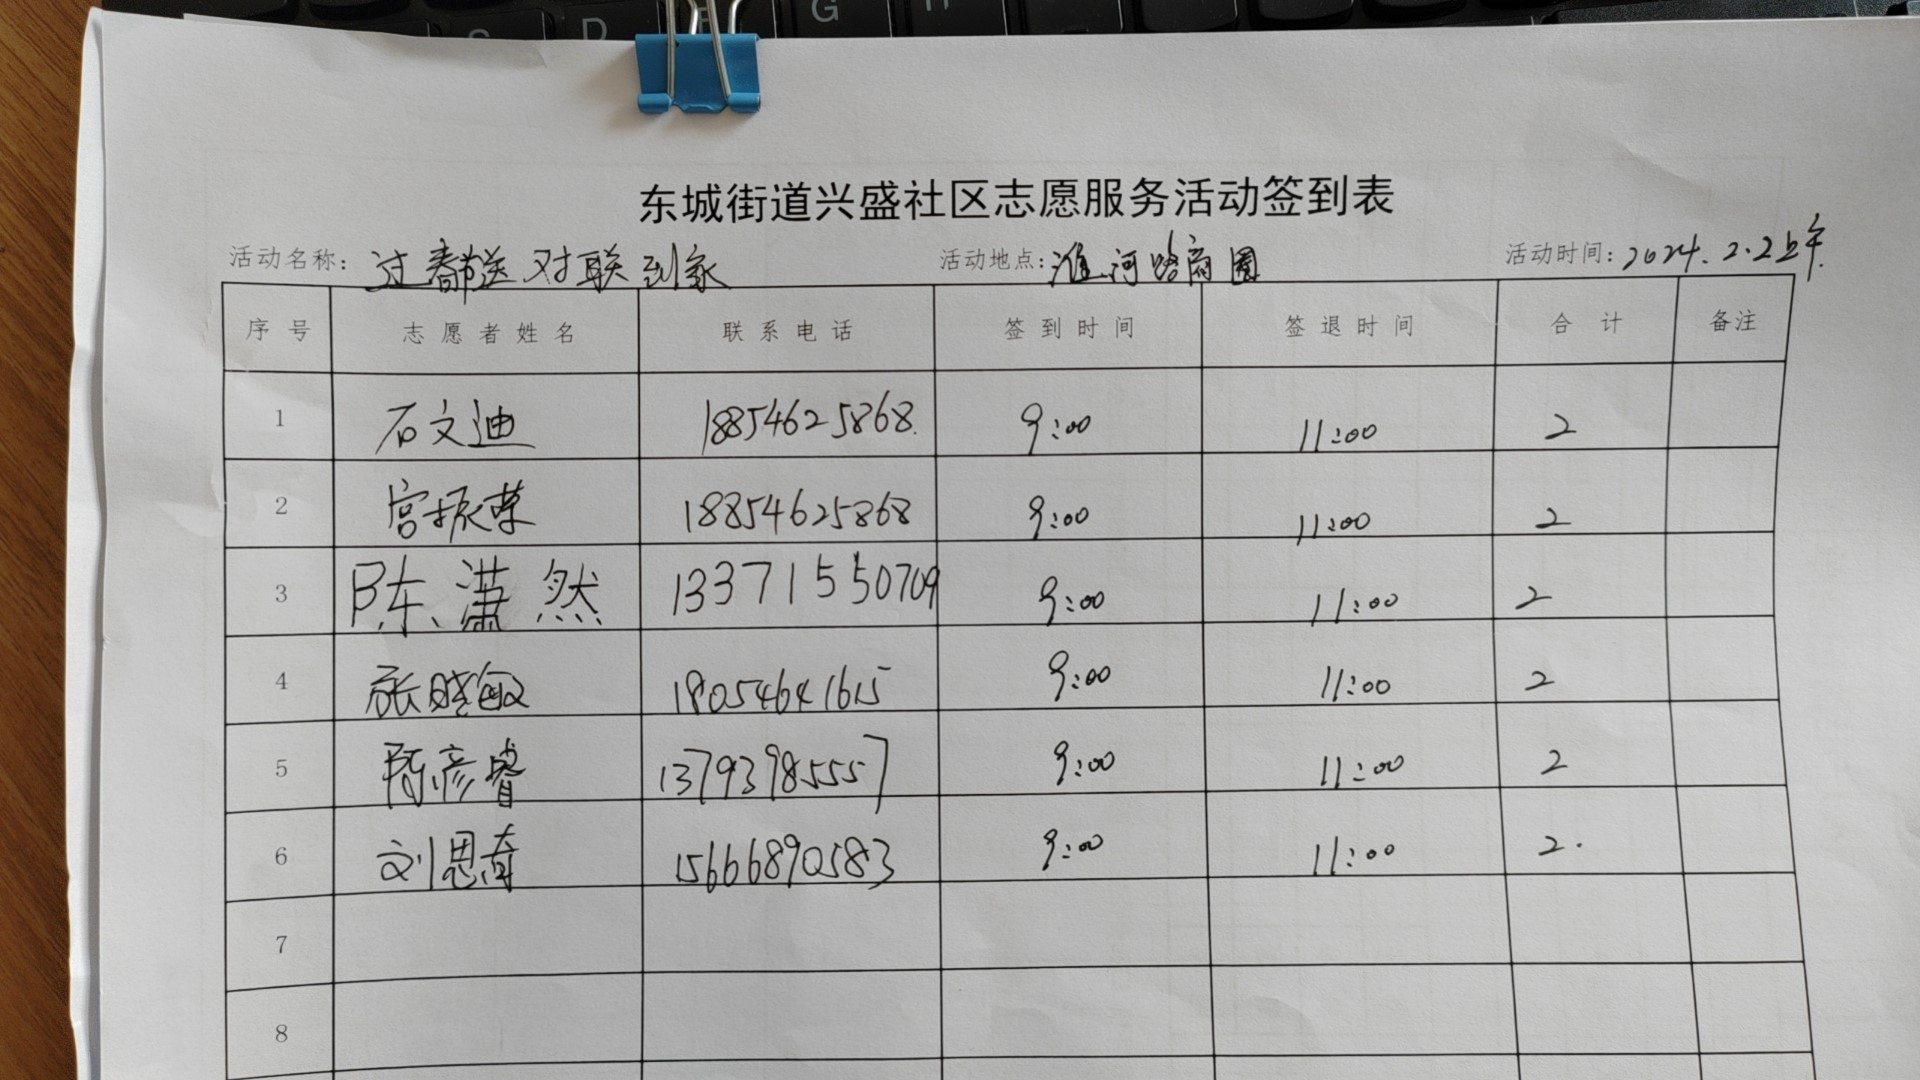 S D F G H
东城街道兴盛社区志愿服务活动签到表
活动名称: 过春节送对联到家 活动地点: 淮河路商圈 活动时间: 2024.2.2上午
序号 志愿者姓名 联系电话 签到时间 签退时间 合计 备注
1 石文迪 18854625868. 9:00 11:00 2
2 宫振荣 18854625868 9:00 11:00 2
3 陈潇然 13371550709 9:00 11:00 2
4 张晓敏 18054641615 9:00 11:00 2
5 陈彦睿 13793985557 9:00 11:00 2
6 刘思奇 15666890583 9:00 11:00 2.
7
8